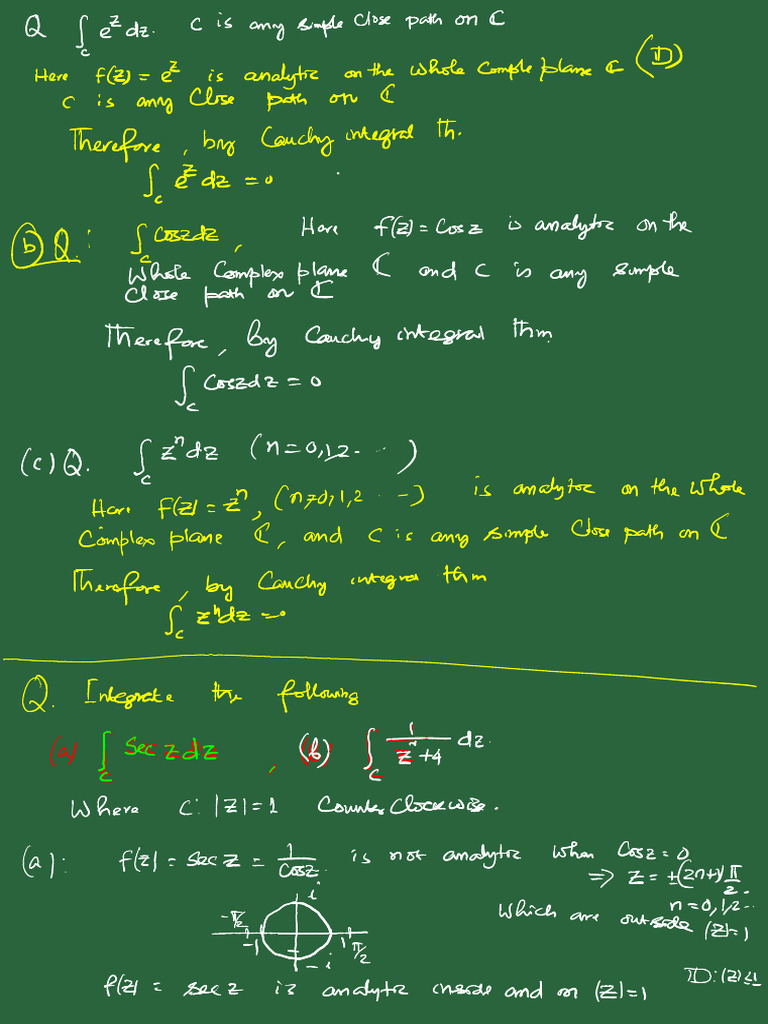 Q ∫_C e^z dz. C is any simple close path on ℂ
Here f(z) = e^z is analytic on the whole comple plane ℂ (D)
C is any Close path on ℂ
Therefore, by Cauchy integral th.
∫_C e^z dz = 0
(b) Q: ∫_C cosz dz, Here f(z) = Cos z is analytic on the
Whole Complex plane ℂ and C is any simple
Close path on ℂ
Therefore, by Cauchy integral thm
∫_C cosz dz = 0
(c) Q. ∫_C z^n dz (n = 0,1,2 ...)
Here f(z) = z^n, (n=0,1,2 ...) is analytic on the whole
Complex plane ℂ, and C is any simple close path on ℂ
Therefore, by Cauchy integral thm
∫_C z^n dz = 0
Q. Integrate the following
(a) ∫_C sec z dz, (b) ∫_C 1/(z²+4) dz.
Where C: |z| = 1 Counter Clockwise.
(a): f(z) = sec z = 1/Cosz is not analytic when Cosz = 0
⇒ z = ±(2n+1)π/2.
n = 0,1,2..
which are outside |z|=1
i
-π/2 -1 1 π/2
-i
D: |z|≤1
f(z) = sec z is analytic inside and on |z|=1